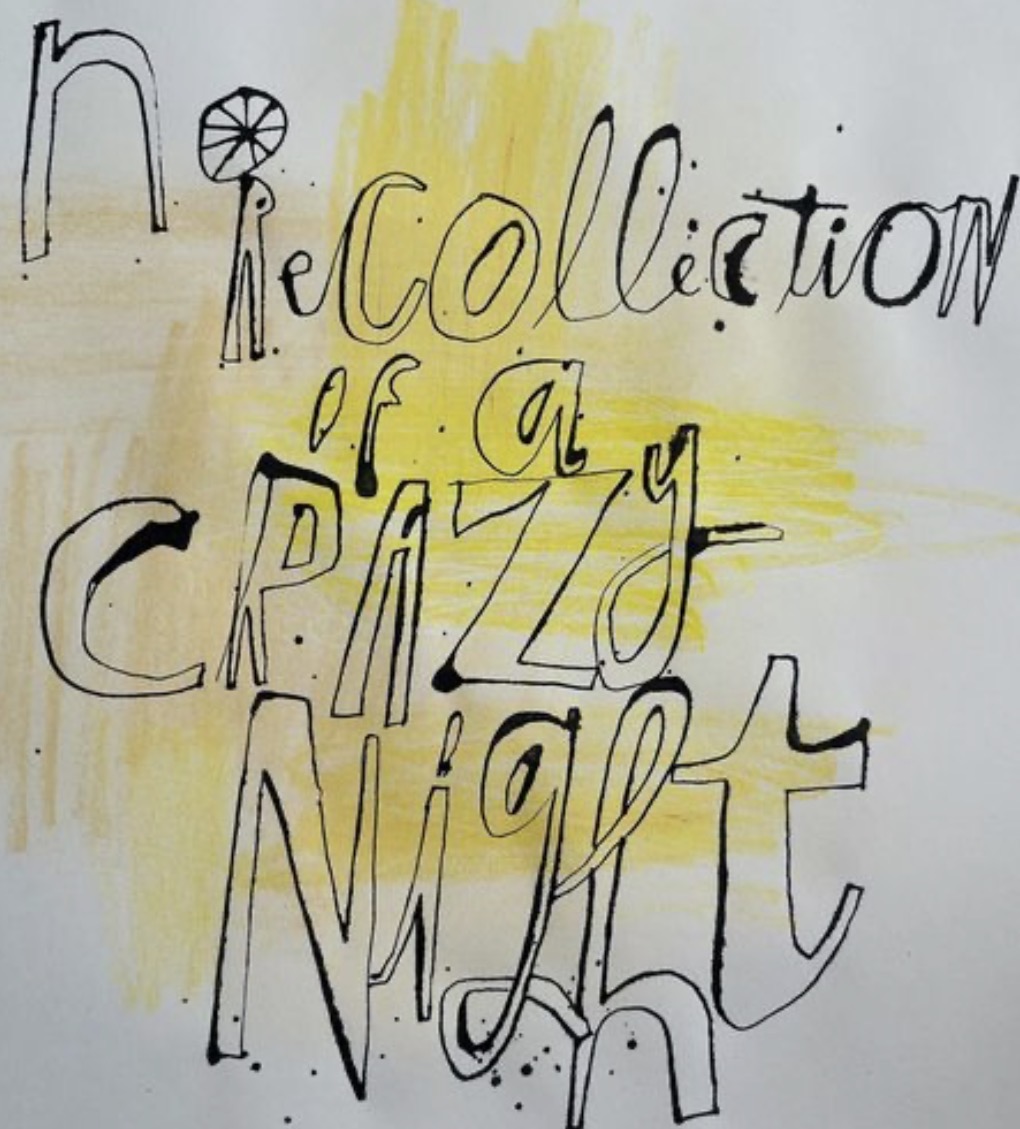 n ReCollectioN
of a
CRAZy
Night